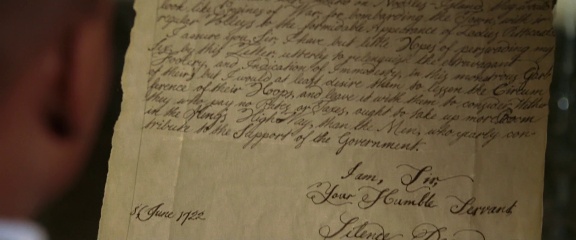 look like Engines of War for bombarding the Town, with ir
regular Volleys to the formidable Appearance of Ladies
I assure you Sir, I have but little Hopes of perswading my
Sex, by this Letter, utterly to relinquish the extravagant
Foolery, and Indication of Immodesty, in this monstrous Garb
of theirs; but I would at least desire them to lessen the Circum
ference of their Hoops, and leave it with them to consider, Whether
they, who pay no Rates or Taxes, ought to take up more Room
in the King's High Way, than the Men, who yearly con-
tribute to the Support of the Government.
I am, Sir,
Your Humble Servant
June 1722
Silence Do